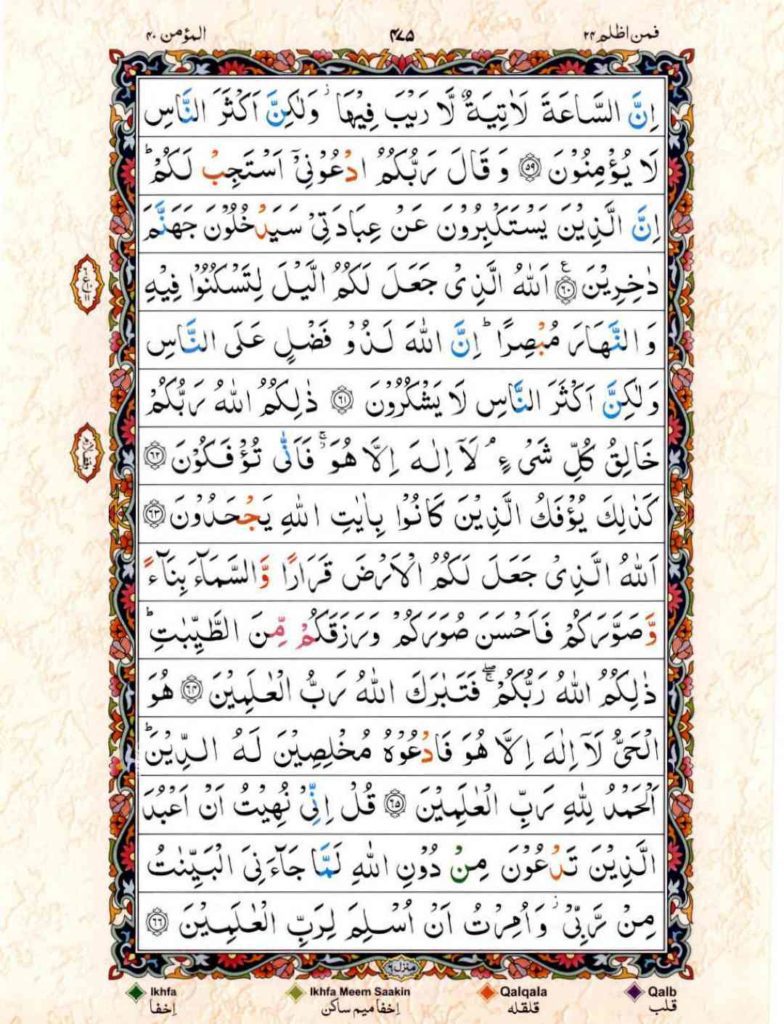 المؤمن ۴۰ ۴۷۵ فمن اظلم ۲۴
اِنَّ السَّاعَةَ لَاٰتِيَةٌ لَّا رَيْبَ فِيْهَا ؗ وَلٰكِنَّ اَكْثَرَ النَّاسِ
لَا يُؤْمِنُوْنَ ﴿۵۹﴾ وَقَالَ رَبُّكُمُ ادْعُوْنِيْٓ اَسْتَجِبْ لَكُمْ ؕ
اِنَّ الَّذِيْنَ يَسْتَكْبِرُوْنَ عَنْ عِبَادَتِيْ سَيَدْخُلُوْنَ جَهَنَّمَ
دٰخِرِيْنَ ﴿۶۰﴾ اَللهُ الَّذِيْ جَعَلَ لَكُمُ الَّيْلَ لِتَسْكُنُوْا فِيْهِ
وَالنَّهَارَ مُبْصِرًا ؕ اِنَّ اللهَ لَذُوْ فَضْلٍ عَلَى النَّاسِ
وَلٰكِنَّ اَكْثَرَ النَّاسِ لَا يَشْكُرُوْنَ ﴿۶۱﴾ ذٰلِكُمُ اللهُ رَبُّكُمْ
خَالِقُ كُلِّ شَيْءٍ ۘ لَآ اِلٰهَ اِلَّا هُوَ ۚ فَاَنّٰى تُؤْفَكُوْنَ ﴿۶۲﴾
كَذٰلِكَ يُؤْفَكُ الَّذِيْنَ كَانُوْا بِاٰيٰتِ اللهِ يَجْحَدُوْنَ ﴿۶۳﴾
اَللهُ الَّذِيْ جَعَلَ لَكُمُ الْاَرْضَ قَرَارًا وَّالسَّمَآءَ بِنَآءً
وَّصَوَّرَكُمْ فَاَحْسَنَ صُوَرَكُمْ وَرَزَقَكُمْ مِّنَ الطَّيِّبٰتِ ؕ
ذٰلِكُمُ اللهُ رَبُّكُمْ ۚۖ فَتَبٰرَكَ اللهُ رَبُّ الْعٰلَمِيْنَ ﴿۶۴﴾ هُوَ
الْحَيُّ لَآ اِلٰهَ اِلَّا هُوَ فَادْعُوْهُ مُخْلِصِيْنَ لَهُ الدِّيْنَ ؕ
اَلْحَمْدُ لِلّٰهِ رَبِّ الْعٰلَمِيْنَ ﴿۶۵﴾ قُلْ اِنِّيْ نُهِيْتُ اَنْ اَعْبُدَ
الَّذِيْنَ تَدْعُوْنَ مِنْ دُوْنِ اللهِ لَمَّا جَآءَنِيَ الْبَيِّنٰتُ
مِنْ رَّبِّيْ ؗ وَاُمِرْتُ اَنْ اُسْلِمَ لِرَبِّ الْعٰلَمِيْنَ ﴿۶۶﴾
منزل ۶
Ikhfa Ikhfa Meem Saakin Qalqala Qalb
اِخفا اِخفا میم ساکن قلقله قلب